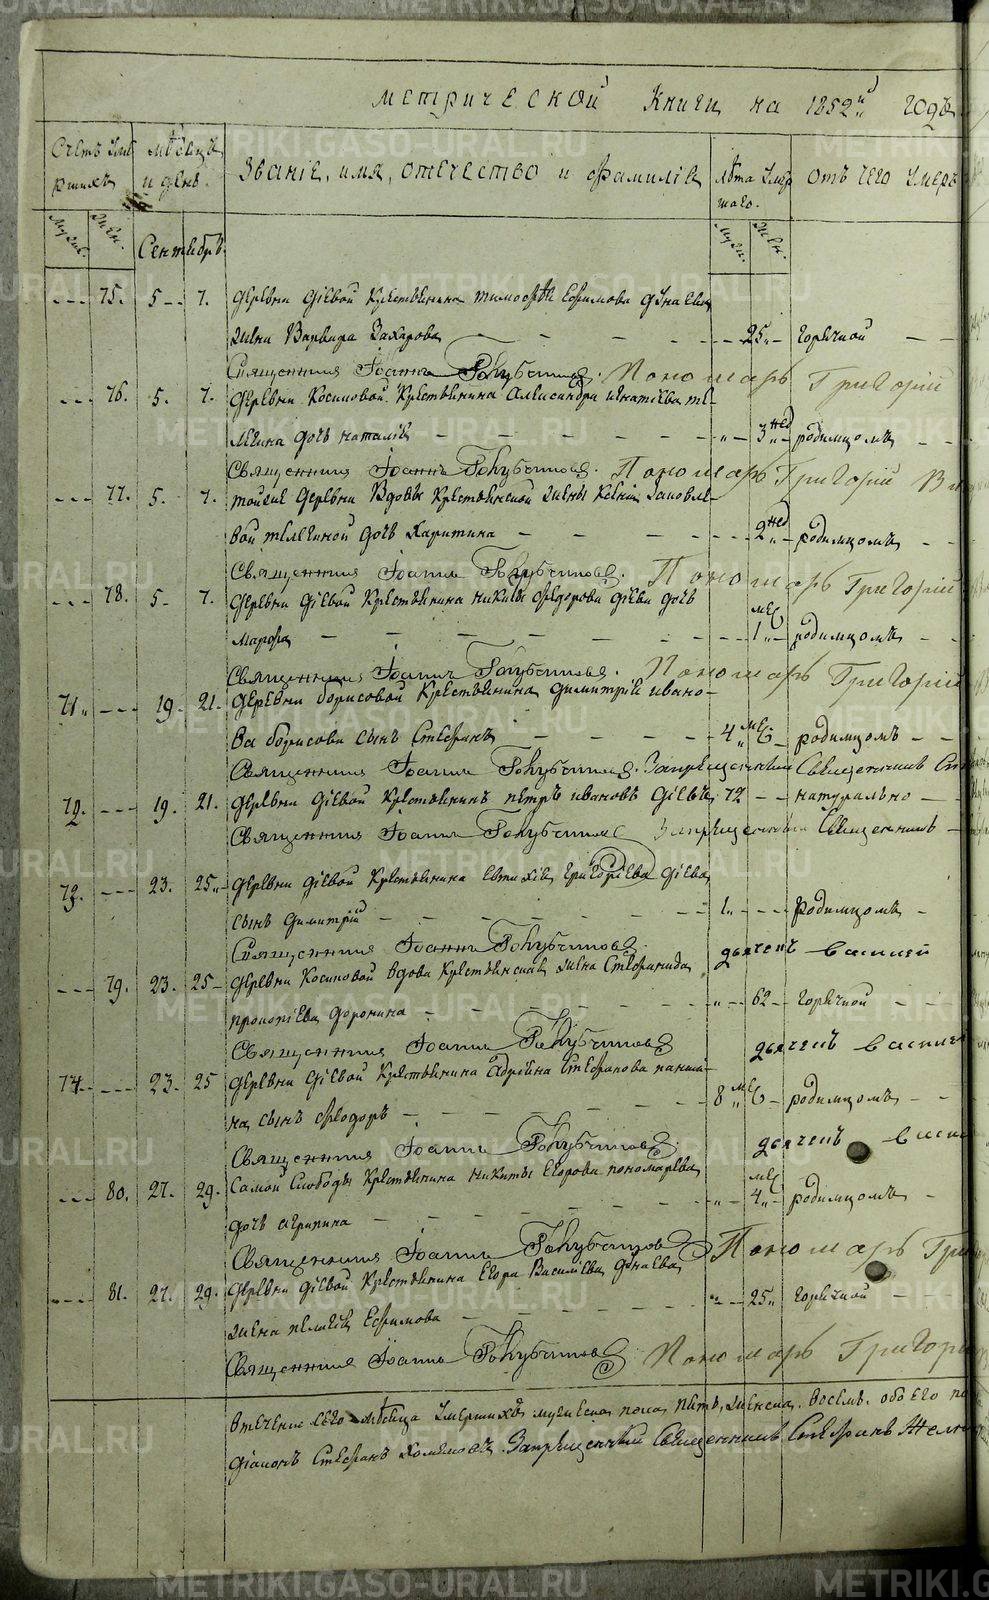 метрической Книги на 1852й годъ
Счетъ Уме мѣсяцъ Званіе, имя, отечество и фамилія лѣта Умер отъ чего Умеръ
ршихъ и день. шаго.
Муж. Жен. Сентябрь. Муж. Жен.
75. 5 7. деревни Діевой Крестьянина тимофѣя Ефимова дунаева
жена Варвара Захарова 25 горячкой
Священникъ Іоаннъ Голубчиковъ. Пономарь Григорій
76. 5. 7. деревни Косиковой Крестьянина Александра игнатіева те-
легина дочь наталія 3 нед родимцомъ
Священникъ Іоаннъ Голубчиковъ. Пономарь Григорій
77. 5. 7. тойже деревни Вдовы Крестьянской жены Ксеніи Яковле-
вой телегиной дочь харитина 2 нед родимцомъ
Священникъ Іоаннъ Голубчиковъ. Пономарь Григорій
78. 5 7. деревни Діевой Крестьянина никиты федорова діева дочь
марфа 1 мес родимцомъ
Священникъ Іоаннъ Голубчиковъ. Пономарь Григорій
71. 19. 21. деревни борисовой Крестьянина димитрія ивано-
ва борисова сынъ Стефанъ 4 мес родимцомъ
Священникъ Іоаннъ Голубчиковъ. Запрещенный Священникъ
72. 19. 21. деревни Діевой Крестьянинъ петръ ивановъ Діевъ 72 натурально
Священникъ Іоаннъ Голубчиковъ Запрещенный Священникъ
73. 23. 25. деревни Діевой Крестьянина евтихія григоріева діева
сынъ димитрій 1 Родимцомъ
Священникъ Іоаннъ Голубчиковъ. дьячекъ василей
79. 23. 25 деревни Косиковой вдова Крестьянская жена Стефанида
прокопіева доронина 62 горячкой
Священникъ Іоаннъ Голубчиковъ дьячекъ
74. 23. 25 деревни Діевой Крестьянина Адріана Стефанова
на сынъ федоръ 8 мес родимцомъ
Священникъ Іоаннъ Голубчиковъ. дьячекъ
80. 27. 29. Самой Слободы Крестьянина никиты Егорова пономарева
дочь агрипина 4 мес родимцомъ
Священникъ Іоаннъ Голубчиковъ Пономарь
81. 27. 29. деревни Діевой Крестьянина Егора Василіева дунаева
жена пелагія Ефимова 25 горячкой
Священникъ Іоаннъ Голубчиковъ Пономарь
втеченіе сего мѣсяца Умершихъ мужеска пола пять, женска восемь. обоего
діаконъ Стефанъ Запрещенный Священникъ Стефанъ
METRIKI.GASO-URAL.RU